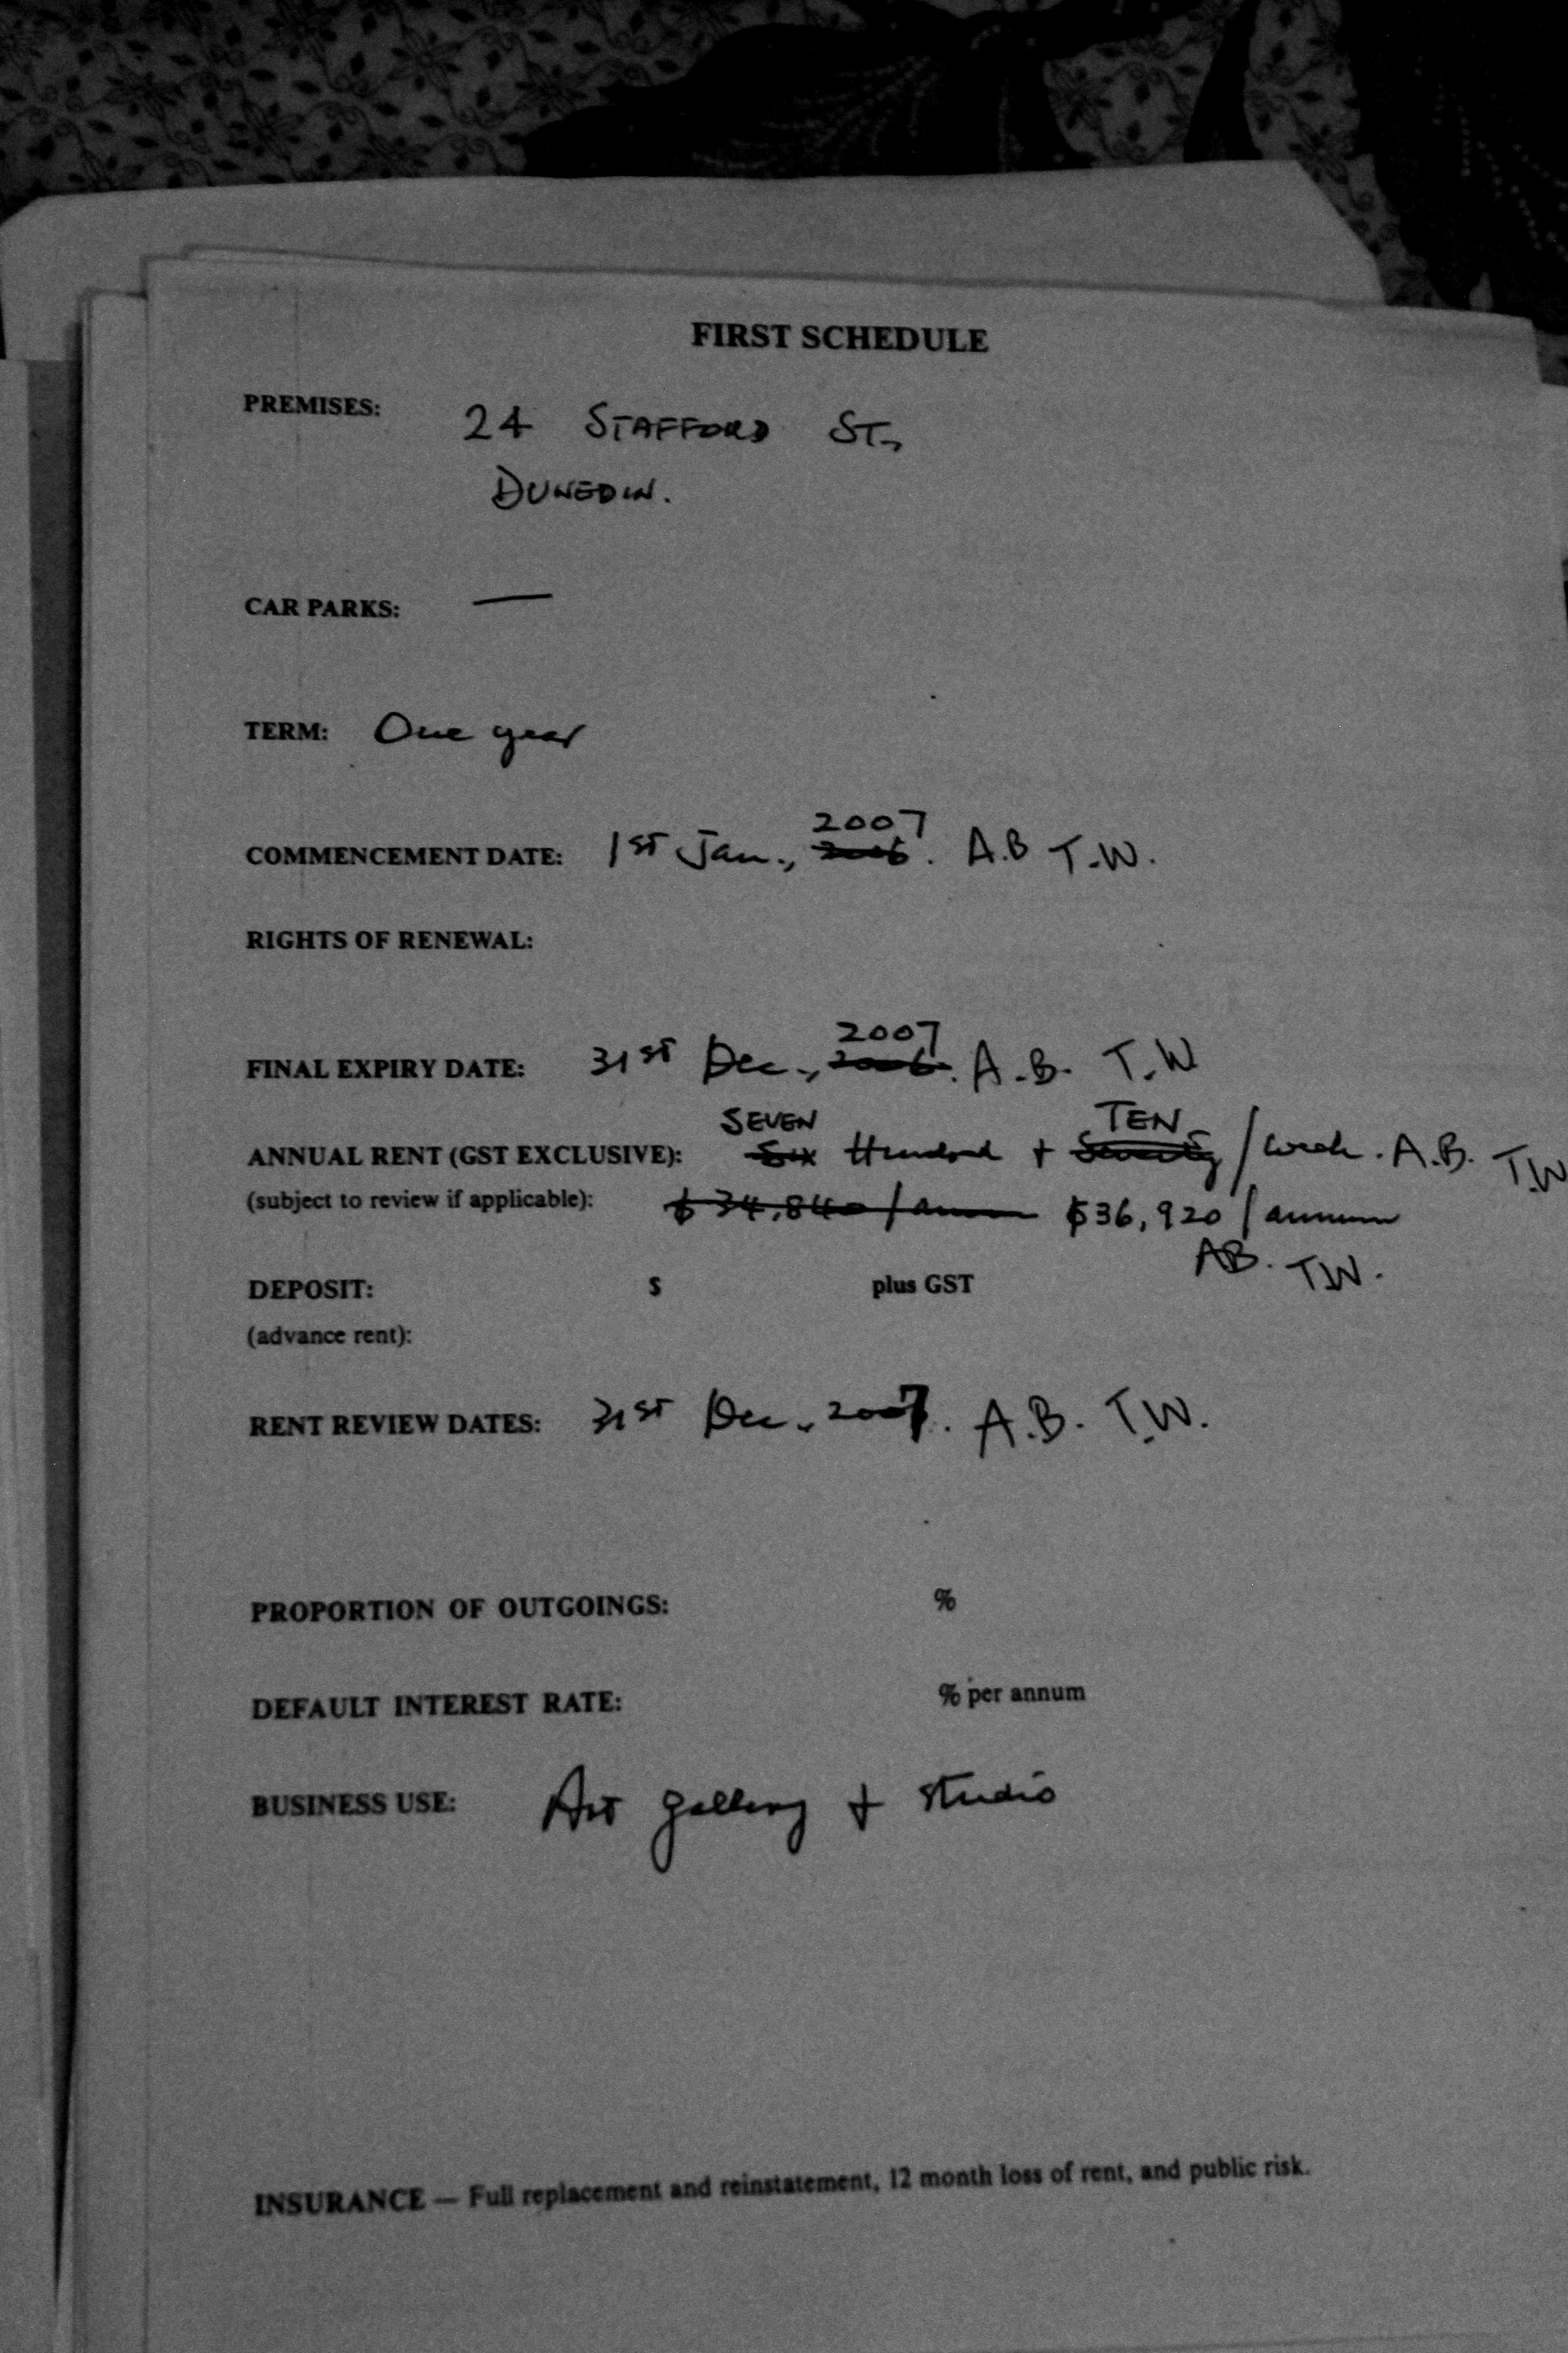 FIRST SCHEDULE
PREMISES: 24 STAFFORD ST,
DUNEDIN.
CAR PARKS: —
TERM: One year
2007
COMMENCEMENT DATE: 1st Jan., 2006. A.B T.W.
RIGHTS OF RENEWAL:
2007
FINAL EXPIRY DATE: 31st Dec., 2006. A.B. T.W
SEVEN TEN
ANNUAL RENT (GST EXCLUSIVE): Six Hundred + Seventy /week. A.B. T.W
(subject to review if applicable): $34,840/annum $36,920/annum
AB. T.W.
DEPOSIT: $ plus GST
(advance rent):
RENT REVIEW DATES: 31st Dec., 2007. A.B. T.W.
PROPORTION OF OUTGOINGS: %
DEFAULT INTEREST RATE: % per annum
BUSINESS USE: Art gallery + studio
INSURANCE — Full replacement and reinstatement, 12 month loss of rent, and public risk.